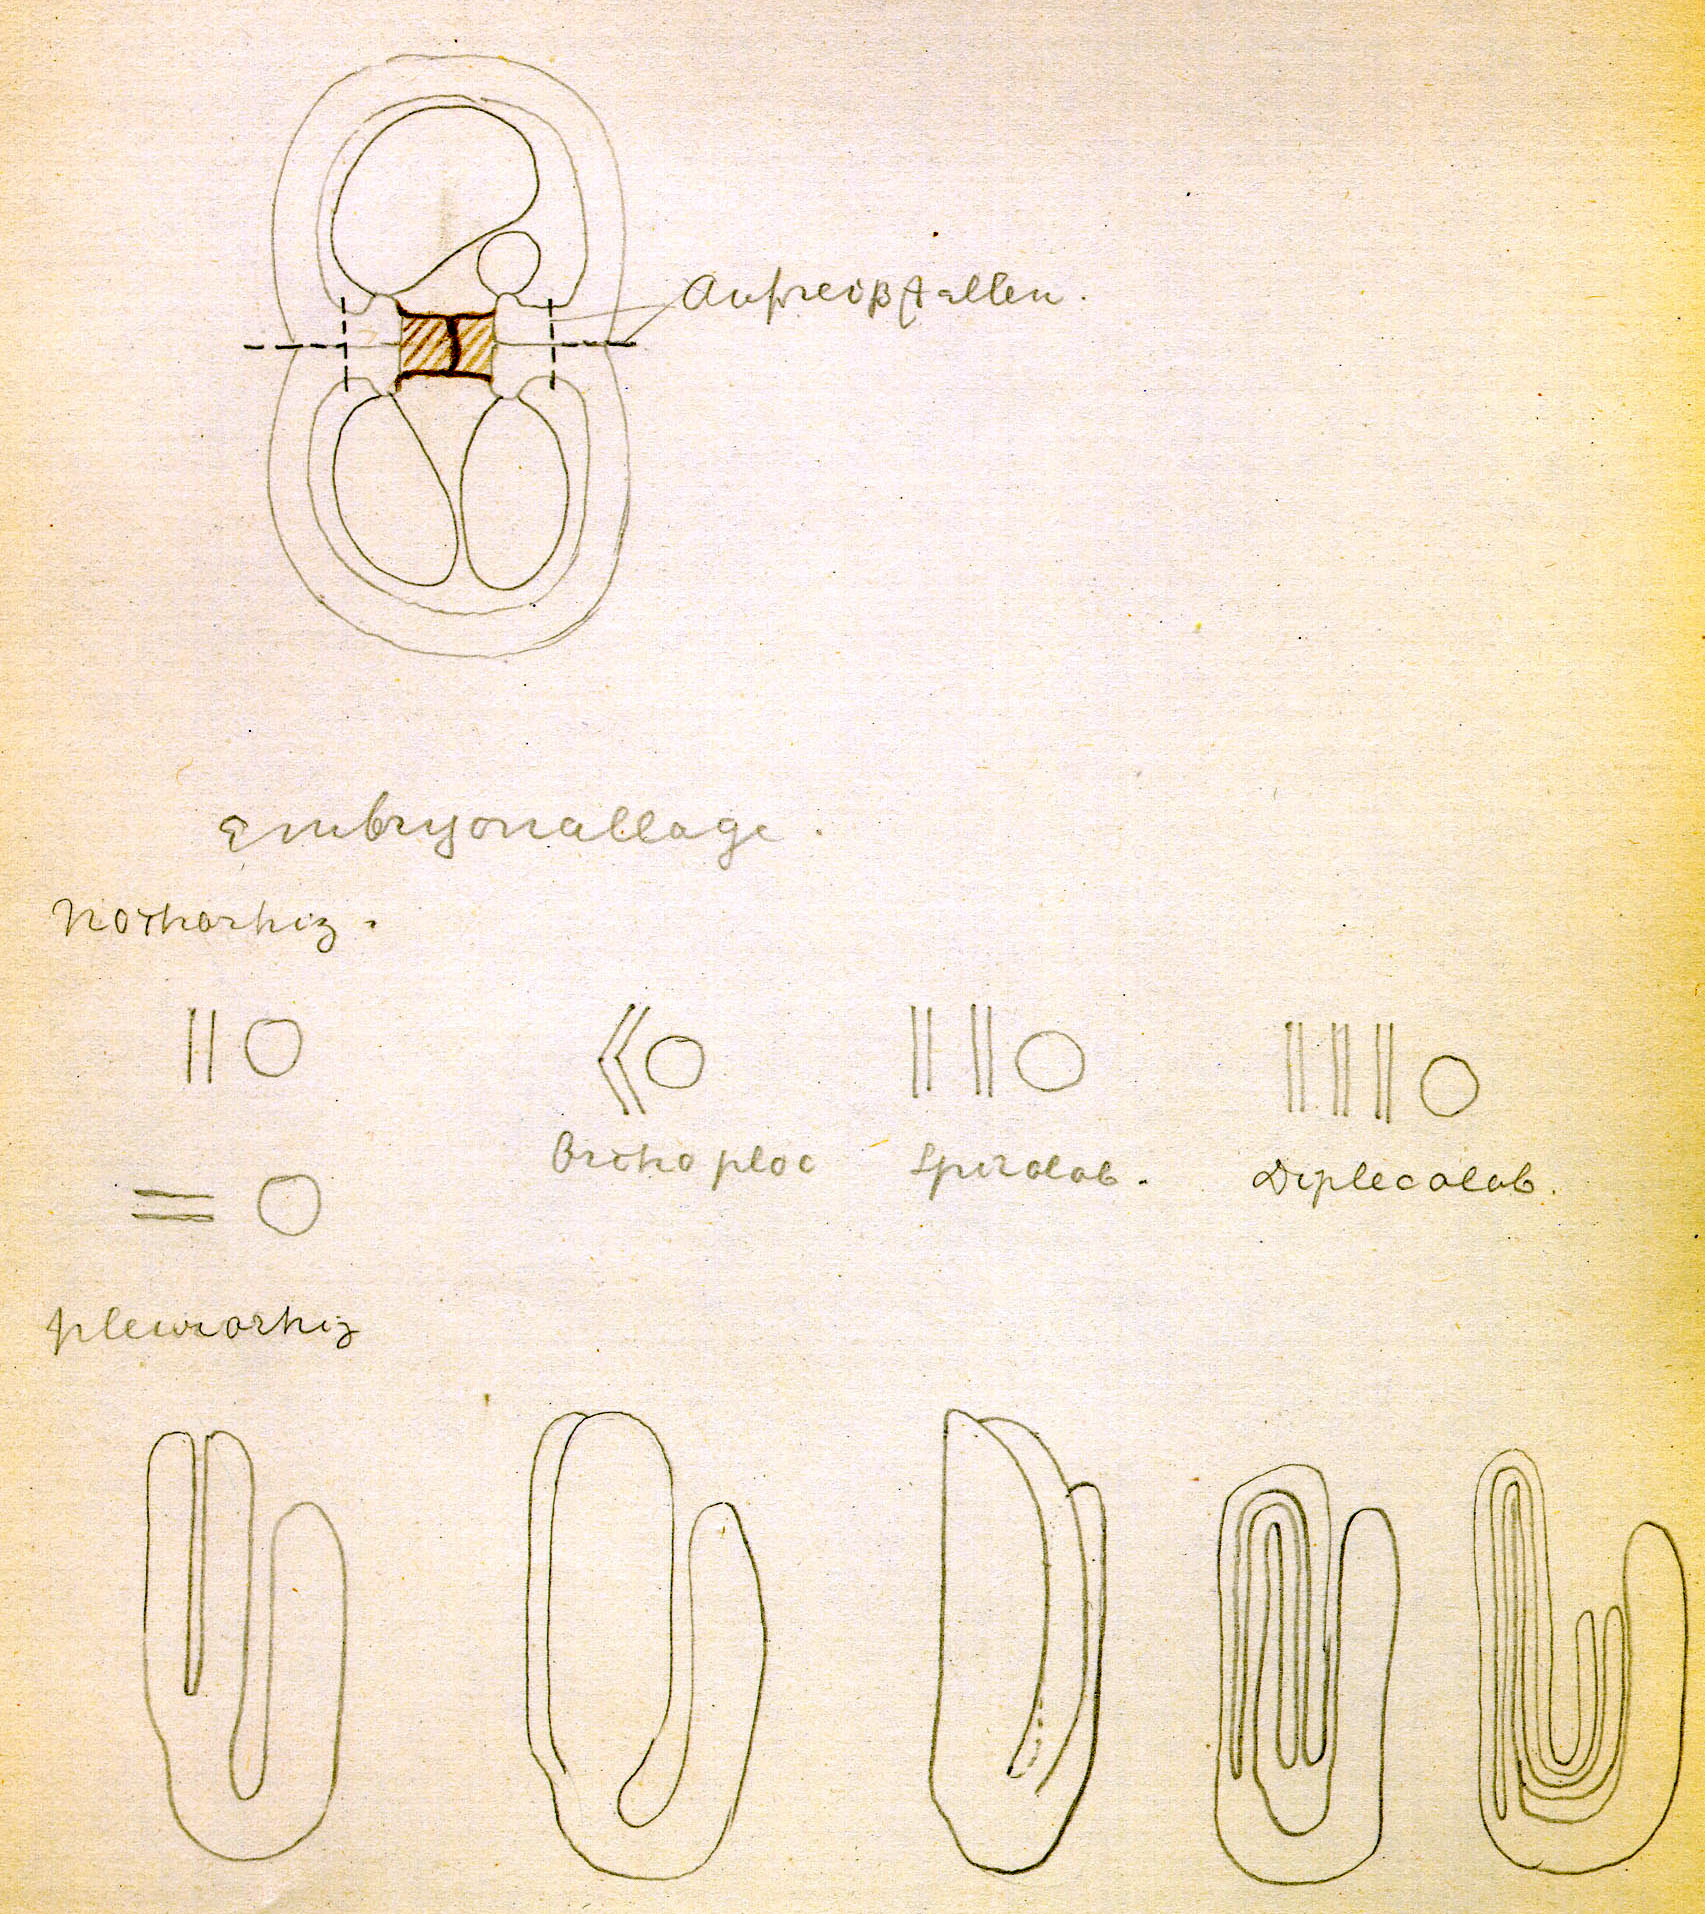 Aufreißstellen.
Embryonallage.
Notorhiz.
Orthoploc
Spirolob.
Diplecolob.
pleurorhiz